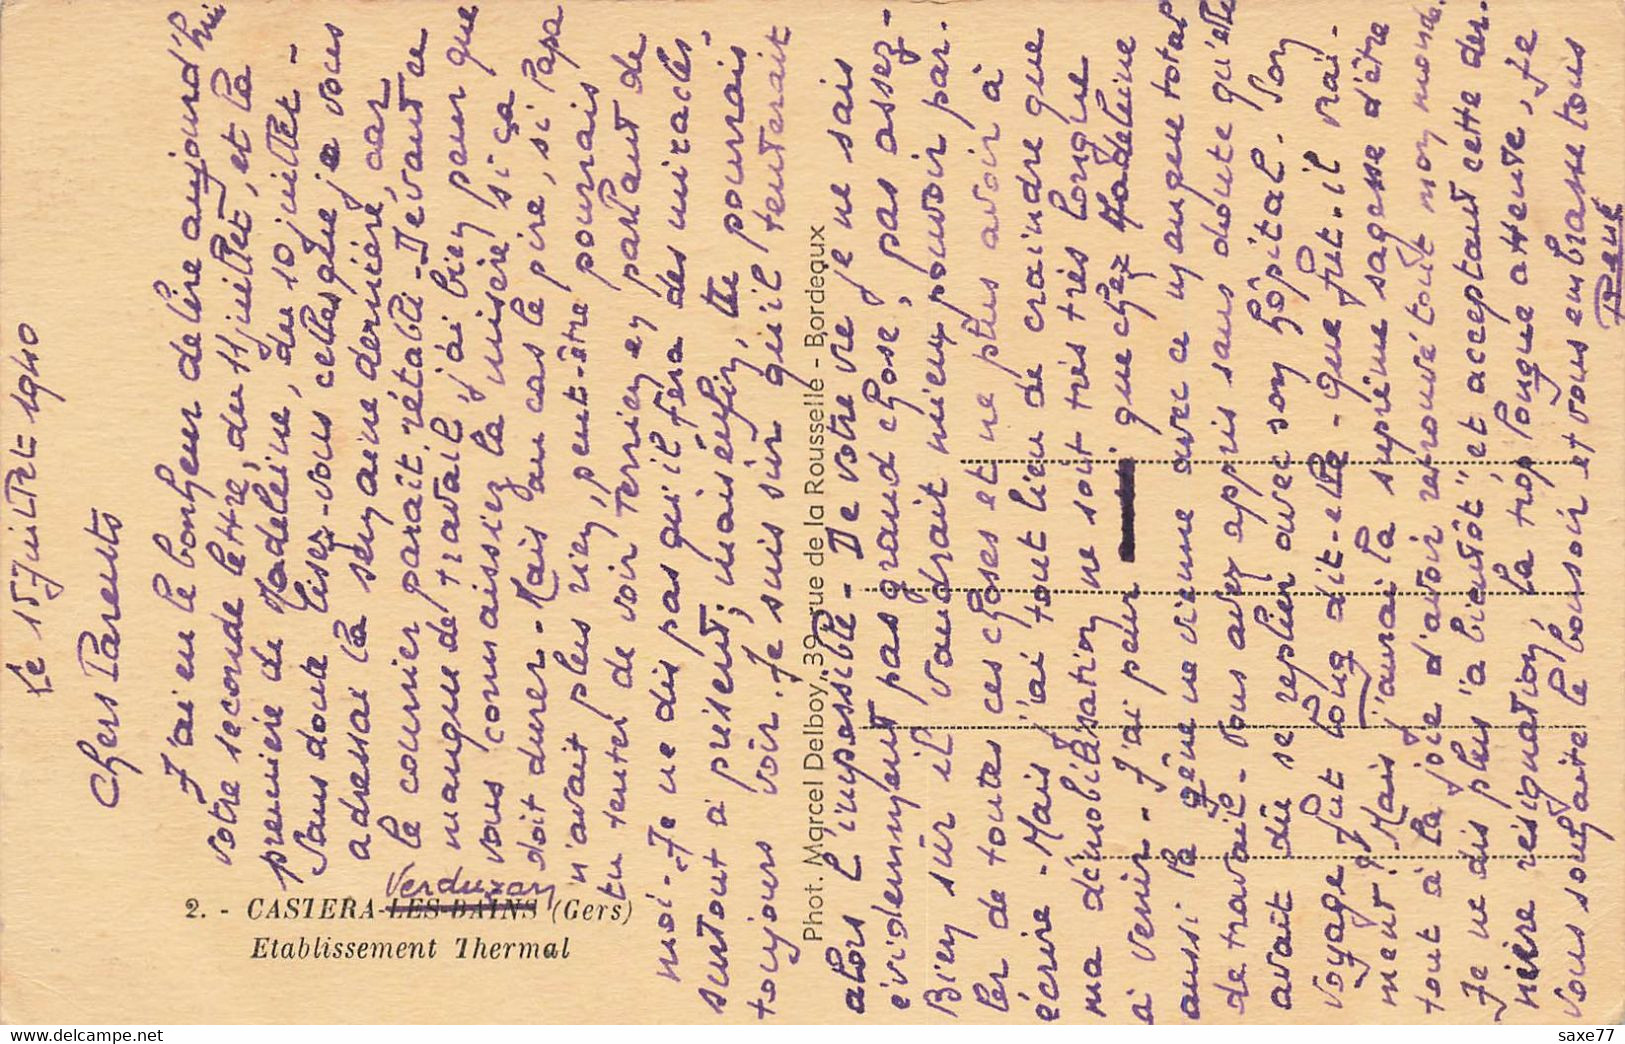 Le 15 Juillet 1940
Chers Parents
J'ai eu le bonheur de lire aujourd'hui
votre seconde lettre, du 11 juillet, et la
première de Madeleine, du 10 juillet -
Sans doute lisez-vous celles que je vous
adressai la semaine dernière, car
le courrier paraît rétabli - Devant ce
manque de travail, j'ai bien peur que
vous connaissiez la misère, si ça
doit durer - Mais au cas le pire, si Papa
n'avait plus rien, peut-être pourrais
tu tenter de voir Terrien en parlant de
moi - Je ne dis pas qu'il fera des miracles,
surtout à présent; mais enfin, tu pourrais
toujours voir. Je suis sûr qu'il tenterait
alors l'impossible - De votre vie je ne sais
évidemment pas grand chose, pas assez -
Bien sûr il vaudrait mieux pouvoir par-
ler de toutes ces choses et ne plus avoir à
écrire - Mais j'ai tout lieu de craindre que
ma démobilisation ne soit très très longue
à venir - J'ai peur que chez Madeleine
aussi la gêne ne vienne avec ce manque total
de travail - Vous avez appris sans doute qu'elle
avait dû se replier avec son hôpital. Son
voyage fut long dit-elle - que fut-il vrai-
ment? Mais j'aurai la suprême sagesse d'être
tout à la joie d'avoir retrouvé tout mon monde.
Je ne dis plus "à bientôt" et acceptant cette der-
nière résignation, la trop longue attente, je
vous souhaite le bonsoir et vous embrasse tous
René
2. - CASTERA-LES-BAINS (Gers)
Verduzan
Etablissement Thermal
Phot. Marcel Delboy, 39, rue de la Rousselle - Bordeaux
Delcampe.net
saxe77